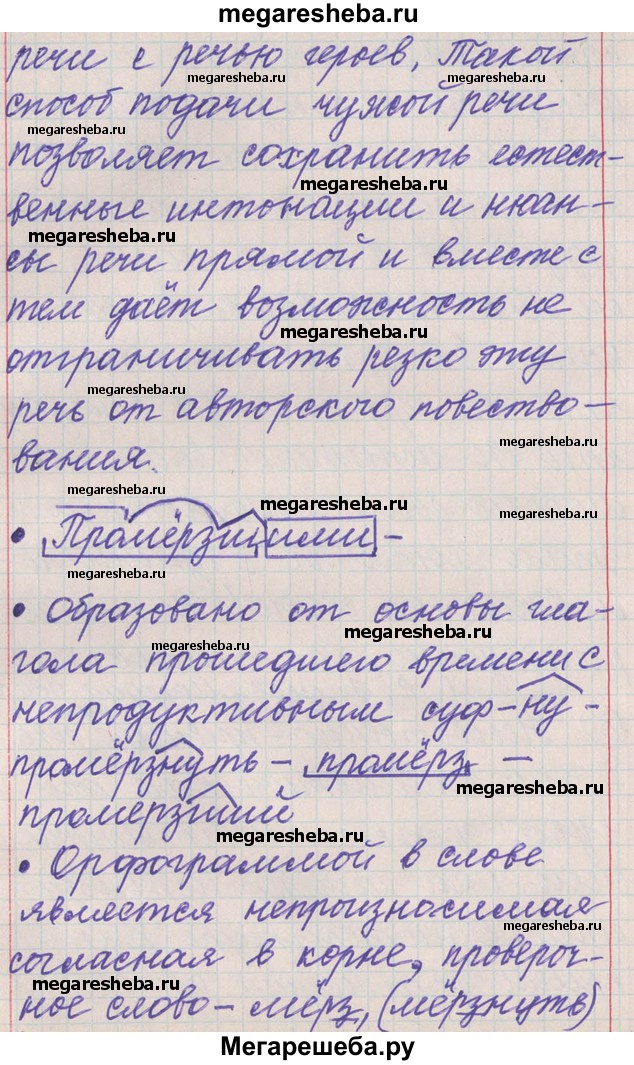 megaresheba.ru
речи с речью героев. Такой
megaresheba.ru megaresheba.ru
способ подачи чужой речи
megaresheba.ru
позволяет сохранить естест-
megaresheba.ru
венные интонации и нюан-
megaresheba.ru
сы речи прямой и вместе с
тем даёт возможность не
megaresheba.ru
отграничивать резко эту
megaresheba.ru
речь от авторского повество-
megaresheba.ru
вания.
megaresheba.ru
megaresheba.ru
megaresheba.ru
• Промёрзшими –
megaresheba.ru
• Образовано от основы гла-
megaresheba.ru
megaresheba.ru
гола прошедшего времени с
megaresheba.ru
непродуктивным суф-ну-
промёрзнуть – промёрз –
megaresheba.ru
промерзший
megaresheba.ru
• Орфограммой в слове
является непроизносимая
megaresheba.ru
согласная в корне, провероч-
megaresheba.ru
ное слово – мёрз, (мёрзнуть)
Мегарешеба.ру